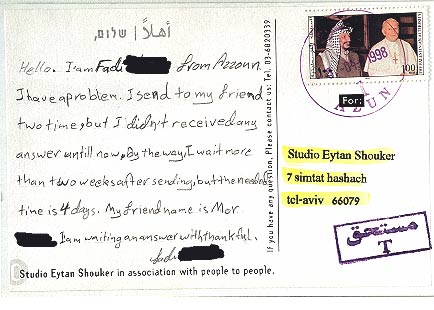 أهلاً | שלום,
Hello. I am Fadi from Azzoun.
I have a problem. I send to my friend
two time, but I didn't received any
answer untill now, By the way, I wait more
than two weeks after sending, but the needed
time is 4 days. My friend name is Mor
I am waiting an answer with thankful.
Fadi
Studio Eytan Shouker in association with people to people.
If you have any question, Please contact us: Tel. 03-6820339
1998
100
AZUN
For:
Studio Eytan Shouker
7 simtat hashach
tel-aviv 66079
مستحق
T